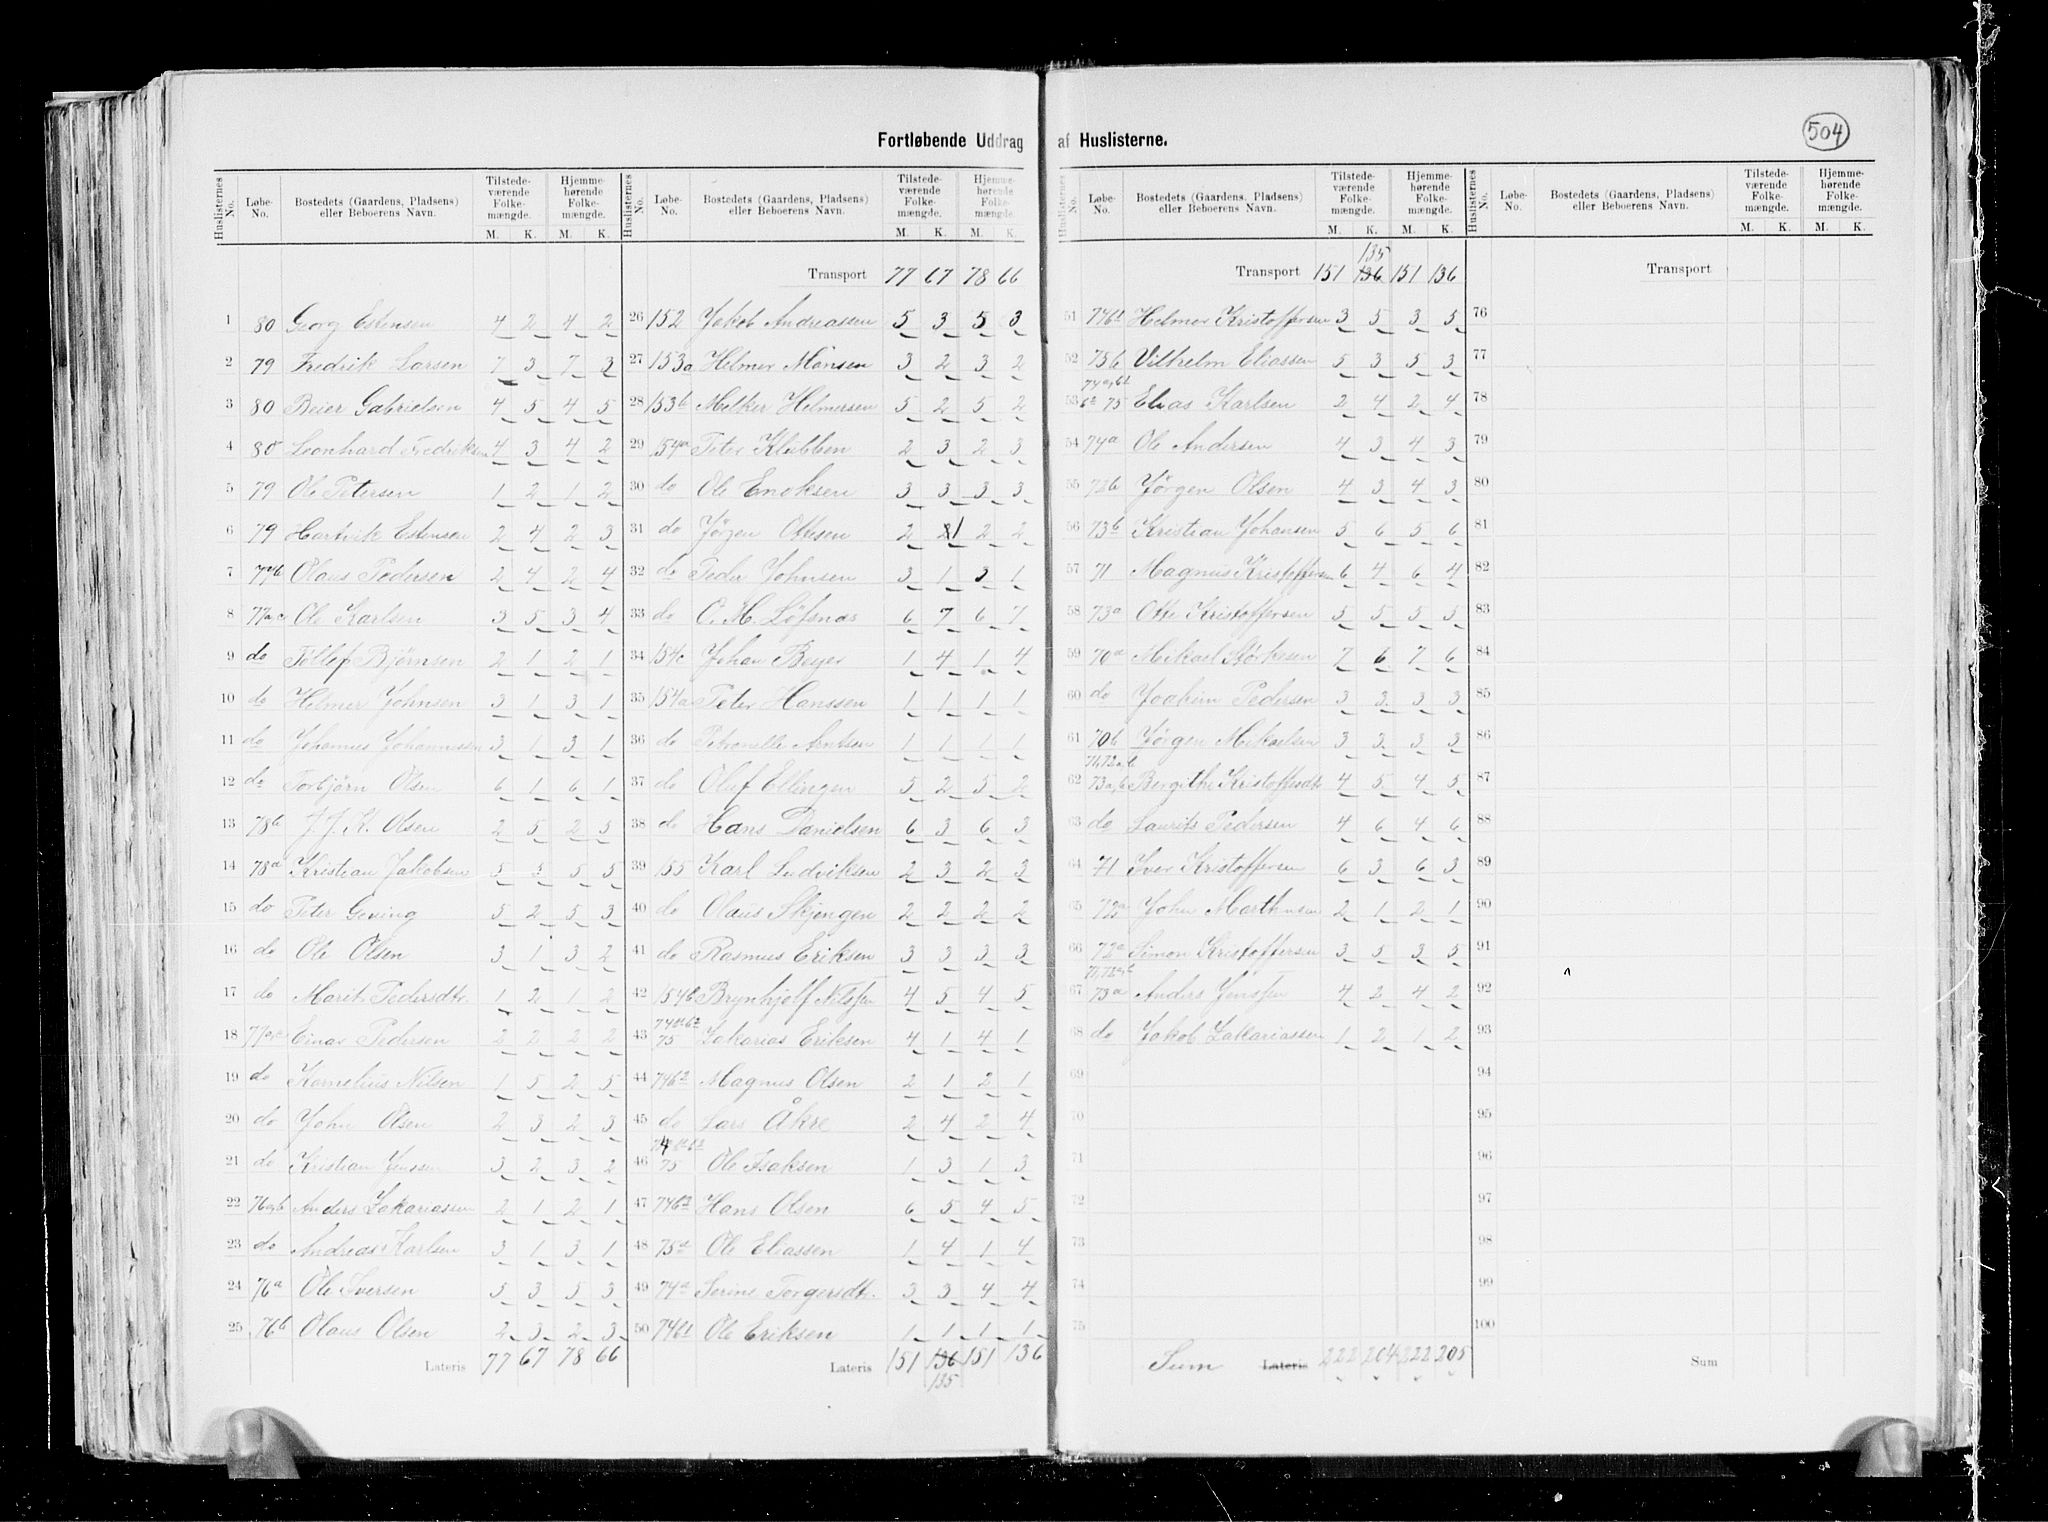 504
Fortløbende Uddrag af Huslisterne.
Huslisternes No. Løbe-No. Bostedets (Gaardens, Pladsens) eller Beboerens Navn. Tilstedeværende Folkemængde. M. K. Hjemmehørende Folkemængde. M. K.
1 80 Georg Estensen 4 2 4 2
2 79 Fredrik Larsen 7 3 7 3
3 80 Beier Gabrielsen 4 5 4 5
4 80 Leonhard Fredriksen 4 3 4 2
5 79 Ole Petersen 1 2 1 2
6 79 Hartvik Estensen 2 4 2 3
7 77b Olaus Pedersen 2 4 2 4
8 77a,c Ole Karlsen 3 5 3 4
9 do Tollef Bjørnsen 2 1 2 1
10 do Helmer Johnsen 3 1 3 1
11 do Johannes Johannessen 3 1 3 1
12 do Torbjørn Olsen 6 1 6 1
13 78b J. J. K. Olsen 2 5 2 5
14 78a Kristian Jakobsen 5 5 5 5
15 do Peter Geving 5 2 5 3
16 do Ole Olsen 3 1 3 2
17 do Marit Pedersdtr. 1 2 1 2
18 77a,c Einar Pedersen 2 2 2 2
19 do Kornelius Nilsen 1 5 2 5
20 do John Olsen 2 3 2 3
21 do Kristian Jenssen 3 2 3 2
22 76a,b Anders Zakariassen 2 1 2 1
23 do Andreas Karlsen 3 1 3 1
24 76a Ole Iversen 5 3 5 3
25 76b Olaus Olsen 2 3 2 3
Lateris 77 67 78 66
Huslisternes No. Løbe-No. Bostedets (Gaardens, Pladsens) eller Beboerens Navn. Tilstedeværende Folkemængde. M. K. Hjemmehørende Folkemængde. M. K.
Transport 77 67 78 66
26 152 Jakob Andreassen 5 3 5 3
27 153a Helmer Monsen 3 2 3 2
28 153b Melker Helmersen 5 2 5 2
29 154a Peter Klubben 2 3 2 3
30 do Ole Enoksen 3 3 3 3
31 do Jørgen Ottesen 2 1 2 2
32 do Peder Johnsen 3 1 3 1
33 do O. M. Löfsnæs 6 7 6 7
34 154c Johan Beyer 1 4 1 4
35 154a Peter Hanssen 1 1 1 1
36 do Petronelle Arntsen 1 1 1 1
37 do Oluf Ellingen 5 2 5 2
38 do Hans Danielsen 6 3 6 3
39 155 Karl Ludviksen 2 3 2 3
40 do Olaus Skjengen 2 2 2 2
41 do Rasmus Eriksen 3 3 3 3
42 154b Brynhjelf Nilssen 4 5 4 5
43 75 Zakarias Eriksen 4 1 4 1
44 74b2 Magnus Olsen 2 1 2 1
45 do Lars Åkre 2 4 2 4
46 75 Ole Isaksen 1 3 1 3
47 74b2 Hans Olsen 6 5 4 5
48 75a Ole Eliassen 1 4 1 4
49 74a Serine Torgersdtr. 3 3 4 4
50 74b1 Ole Eriksen 1 1 1 1
Lateris 151 136 151 136
135
Huslisternes No. Løbe-No. Bostedets (Gaardens, Pladsens) eller Beboerens Navn. Tilstedeværende Folkemængde. M. K. Hjemmehørende Folkemængde. M. K.
135
Transport 151 136 151 136
51 74b1 Helmer Kristoffersen 3 5 3 5
52 75b Vilhelm Eliassen 5 3 5 3
53 75 Elias Karlsen 2 4 2 4
54 74a Ole Andersen 4 3 4 3
55 72b Jørgen Olsen 4 3 4 3
56 73b Kristian Johansen 5 6 5 6
57 71 Magnus Kristoffersen 6 4 6 4
58 73a Otte Kristoffersen 5 5 5 5
59 70a Mikael Størkesen 7 6 7 6
60 do Joakim Pedersen 3 3 3 3
61 70b Jørgen Mikaelsen 3 3 3 3
71,72a,b
62 73a,b Bergithe Kristoffersdtr 4 5 4 5
63 do Laurits Pedersen 4 6 4 6
64 71 Iver Kristoffersen 6 3 6 3
65 72a John Marthinsen 2 1 2 1
66 72a Simon Kristoffersen 3 5 3 5
71,72a,b
67 73a Anders Jenssen 4 2 4 2
68 do Jakob Zakariassen 1 2 1 2
69
70
71
72
73
74
75
Sum Lateris 222 204 222 205
Huslisternes No. Løbe-No. Bostedets (Gaardens, Pladsens) eller Beboerens Navn. Tilstedeværende Folkemængde. M. K. Hjemmehørende Folkemængde. M. K.
Transport
76
77
78
79
80
81
82
83
84
85
86
87
88
89
90
91
92
93
94
95
96
97
98
99
100
Sum